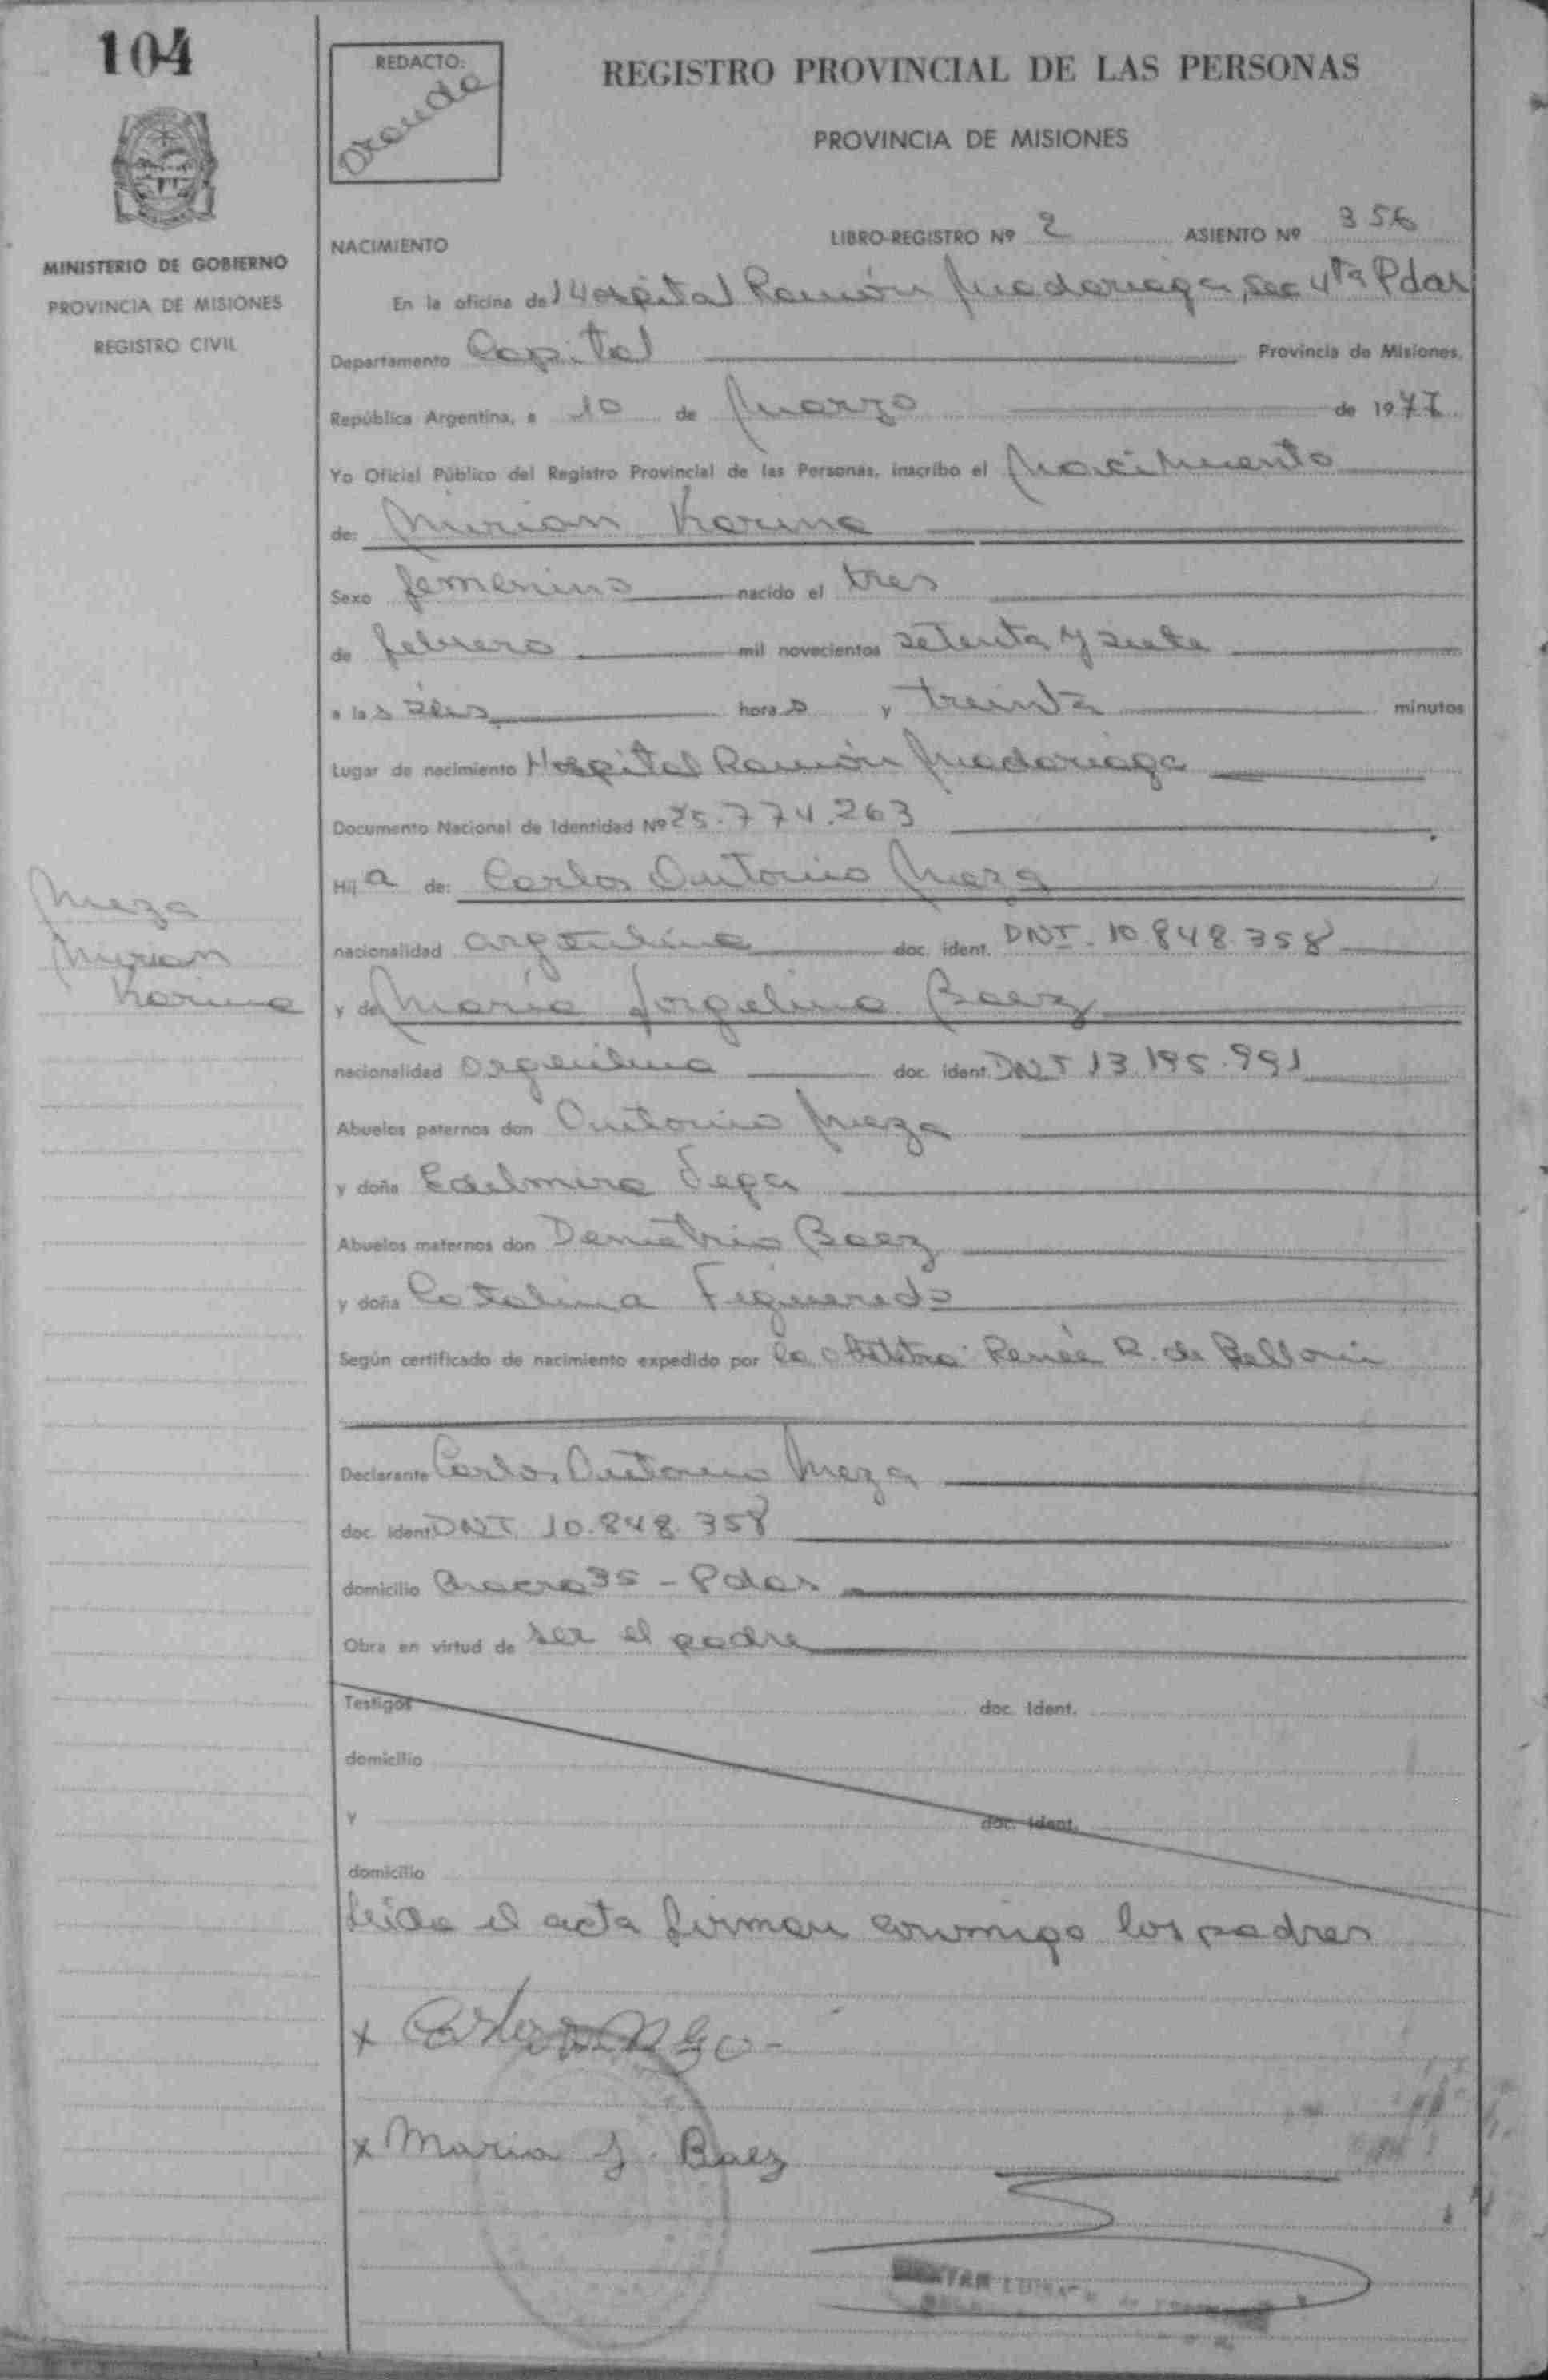 104
REDACTO:
REGISTRO PROVINCIAL DE LAS PERSONAS
PROVINCIA DE MISIONES
MINISTERIO DE GOBIERNO
PROVINCIA DE MISIONES
REGISTRO CIVIL
NACIMIENTO
LIBRO-REGISTRO Nº 2 ASIENTO Nº 356
En la oficina del Hospital Ramón Madariaga, Sec 4ta Pdas
Departamento Capital Provincia de Misiones.
República Argentina, a 10 de Marzo de 1977
Yo Oficial Público del Registro Provincial de las Personas, inscribo el Nacimiento
de: Mirian Karina
Sexo femenino nacido el tres
de febrero mil novecientos setenta y siete
a las horas y treinta minutos
Lugar de nacimiento Hospital Ramón Madariaga
Documento Nacional de Identidad Nº 25.774.263
Hija de: Carlos Antonio Meza
nacionalidad argentina doc. ident. DNI. 10.848.358
y de María Jorgelina Baez
nacionalidad argentina doc. ident. DNI 13.195.991
Abuelos paternos don Antonio Meza
y doña Edelmira
Abuelos maternos don Demetrio Baez
y doña Catalina Figueredo
Según certificado de nacimiento expedido por la Renée R. de Belloni
Declarante Carlos Antonio Meza
doc. ident. DNI. 10.848.358
domicilio 35 - Pdas
Obra en virtud de ser el padre
Testigos doc. Ident.
domicilio
y doc. Ident.
domicilio
Leída el acta firman conmigo los padres
x
x Maria J. Baez
Meza
Mirian
Karina